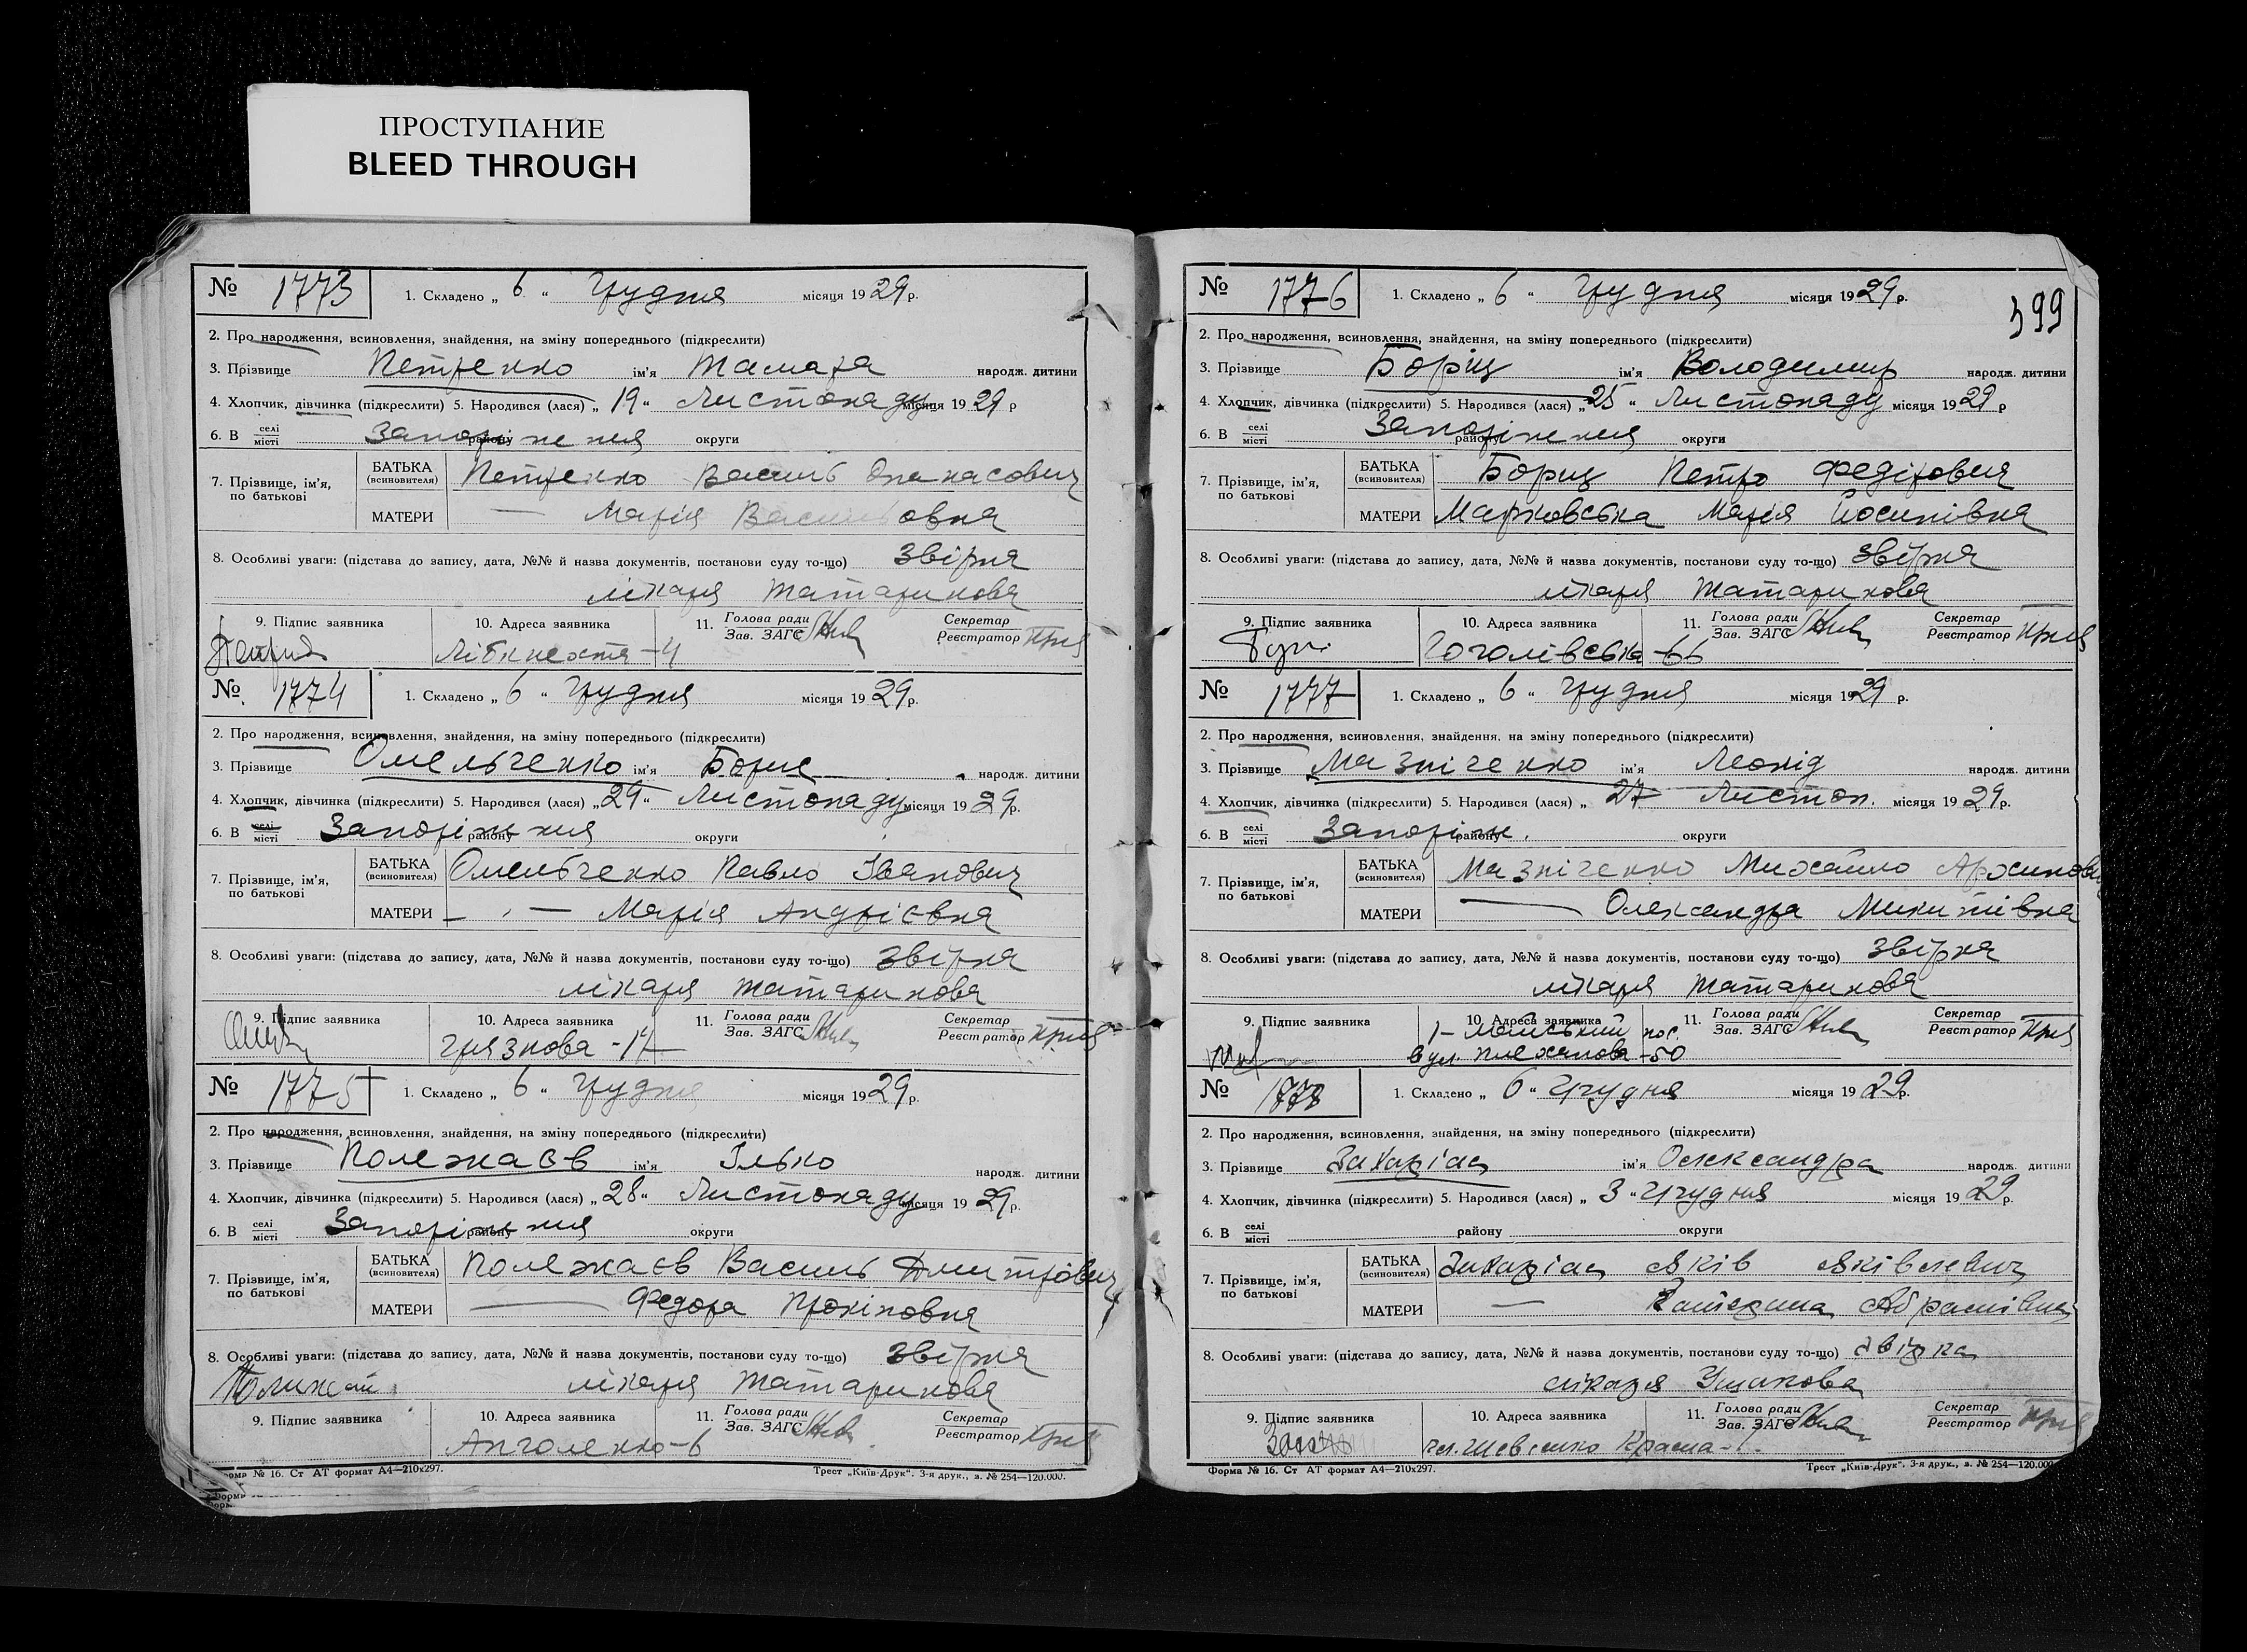 ПРОСТУПАНИЕ
BLEED THROUGH
№ 1773 1. Складено „ 6 “ Грудня місяця 1929 р.
2. Про народження, всиновлення, знайдення, на зміну попереднього (підкреслити)
3. Прізвище Петренко ім'я Тамара народж. дитини
4. Хлопчик, дівчинка (підкреслити) 5. Народився (лася) „ 19 “ Листопаду місяця 1929 р
6. В селі місті Запоріжжя району округи
7. Прізвище, ім'я, по батькові
БАТЬКА (всиновителя) Петренко Василь Опанасович
МАТЕРИ — Марія Васильовна
8. Особливі уваги: (підстава до запису, дата, №№ й назва документів, постанови суду то-що) Звірка
лікаря Татаринова
9. Підпис заявника 10. Адреса заявника 11. Голова ради Зав. ЗАГС Секретар Реєстратор
Лібкнехта - 4
№ 1774 1. Складено „ 6 “ Грудня місяця 1929 р.
2. Про народження, всиновлення, знайдення, на зміну попереднього (підкреслити)
3. Прізвище Омельченко ім'я Борис народж. дитини
4. Хлопчик, дівчинка (підкреслити) 5. Народився (лася) „ 29 “ Листопаду місяця 1929 р.
6. В селі місті Запоріжжя району округи
7. Прізвище, ім'я, по батькові
БАТЬКА (всиновителя) Омельченко Павло Іванович
МАТЕРИ — " — Марія Андрієвна
8. Особливі уваги: (підстава до запису, дата, №№ й назва документів, постанови суду то-що) Звірка
лікаря Татаринова
9. Підпис заявника 10. Адреса заявника 11. Голова ради Зав. ЗАГС Секретар Реєстратор
Грязнова - 17
№ 1775 1. Складено „ 6 “ Грудня місяця 1929 р.
2. Про народження, всиновлення, знайдення, на зміну попереднього (підкреслити)
3. Прізвище Полежаєв ім'я Ілько народж. дитини
4. Хлопчик, дівчинка (підкреслити) 5. Народився (лася) „ 28 “ Листопаду місяця 1929 р.
6. В селі місті Запоріжжя району округи
7. Прізвище, ім'я, по батькові
БАТЬКА (всиновителя) Полежаєв Василь Дмитрович
МАТЕРИ — Федора Прокіповна
8. Особливі уваги: (підстава до запису, дата, №№ й назва документів, постанови суду то-що) Звірка
лікаря Татаринова
9. Підпис заявника 10. Адреса заявника 11. Голова ради Зав. ЗАГС Секретар Реєстратор
Анголенко - 6
Форма № 16. Ст АТ формат А4—210х297. Трест „Київ-Друк“. 3-я друк., з. № 254—120.000.
399
№ 1776 1. Складено „ 6 “ Грудня місяця 1929 р.
2. Про народження, всиновлення, знайдення, на зміну попереднього (підкреслити)
3. Прізвище Борщ ім'я Володимир народж. дитини
4. Хлопчик, дівчинка (підкреслити) 5. Народився (лася) „ 25 “ Листопаду місяця 1929 р
6. В селі місті Запоріжжя району округи
7. Прізвище, ім'я, по батькові
БАТЬКА (всиновителя) Борщ Петро Федірович
МАТЕРИ Марковська Марія Йосипівна
8. Особливі уваги: (підстава до запису, дата, №№ й назва документів, постанови суду то-що) Звірка
лікаря Татаринова
9. Підпис заявника 10. Адреса заявника 11. Голова ради Зав. ЗАГС Секретар Реєстратор
Гоголівська - 66
№ 1777 1. Складено „ 6 “ Грудня місяця 1929 р.
2. Про народження, всиновлення, знайдення, на зміну попереднього (підкреслити)
3. Прізвище Мазніченко ім'я Леонід народж. дитини
4. Хлопчик, дівчинка (підкреслити) 5. Народився (лася) „ 27 Листоп. місяця 1929 р.
6. В селі місті Запоріж. району округи
7. Прізвище, ім'я, по батькові
БАТЬКА (всиновителя) Мазніченко Михайло
МАТЕРИ — Олександра Микитівна
8. Особливі уваги: (підстава до запису, дата, №№ й назва документів, постанови суду то-що) Звірка
лікаря Татаринова
9. Підпис заявника 10. Адреса заявника 11. Голова ради Зав. ЗАГС Секретар Реєстратор
1-Майський пос.
вул. Плеханова - 50
№ 1778 1. Складено „ 6 “ Грудня місяця 1929 р.
2. Про народження, всиновлення, знайдення, на зміну попереднього (підкреслити)
3. Прізвище Захаріас ім'я Олександра народж. дитини
4. Хлопчик, дівчинка (підкреслити) 5. Народився (лася) „ 3 “ Грудня місяця 1929 р.
6. В селі місті району округи
7. Прізвище, ім'я, по батькові
БАТЬКА (всиновителя) Захаріас Яків Яківлевич
МАТЕРИ — Катерина Абрамівна
8. Особливі уваги: (підстава до запису, дата, №№ й назва документів, постанови суду то-що) Звірка
лікаря Ушакова
9. Підпис заявника 10. Адреса заявника 11. Голова ради Зав. ЗАГС Секретар Реєстратор
Форма № 16. Ст АТ формат А4—210х297. Трест „Київ-Друк“. 3-я друк., з. № 254—120.000